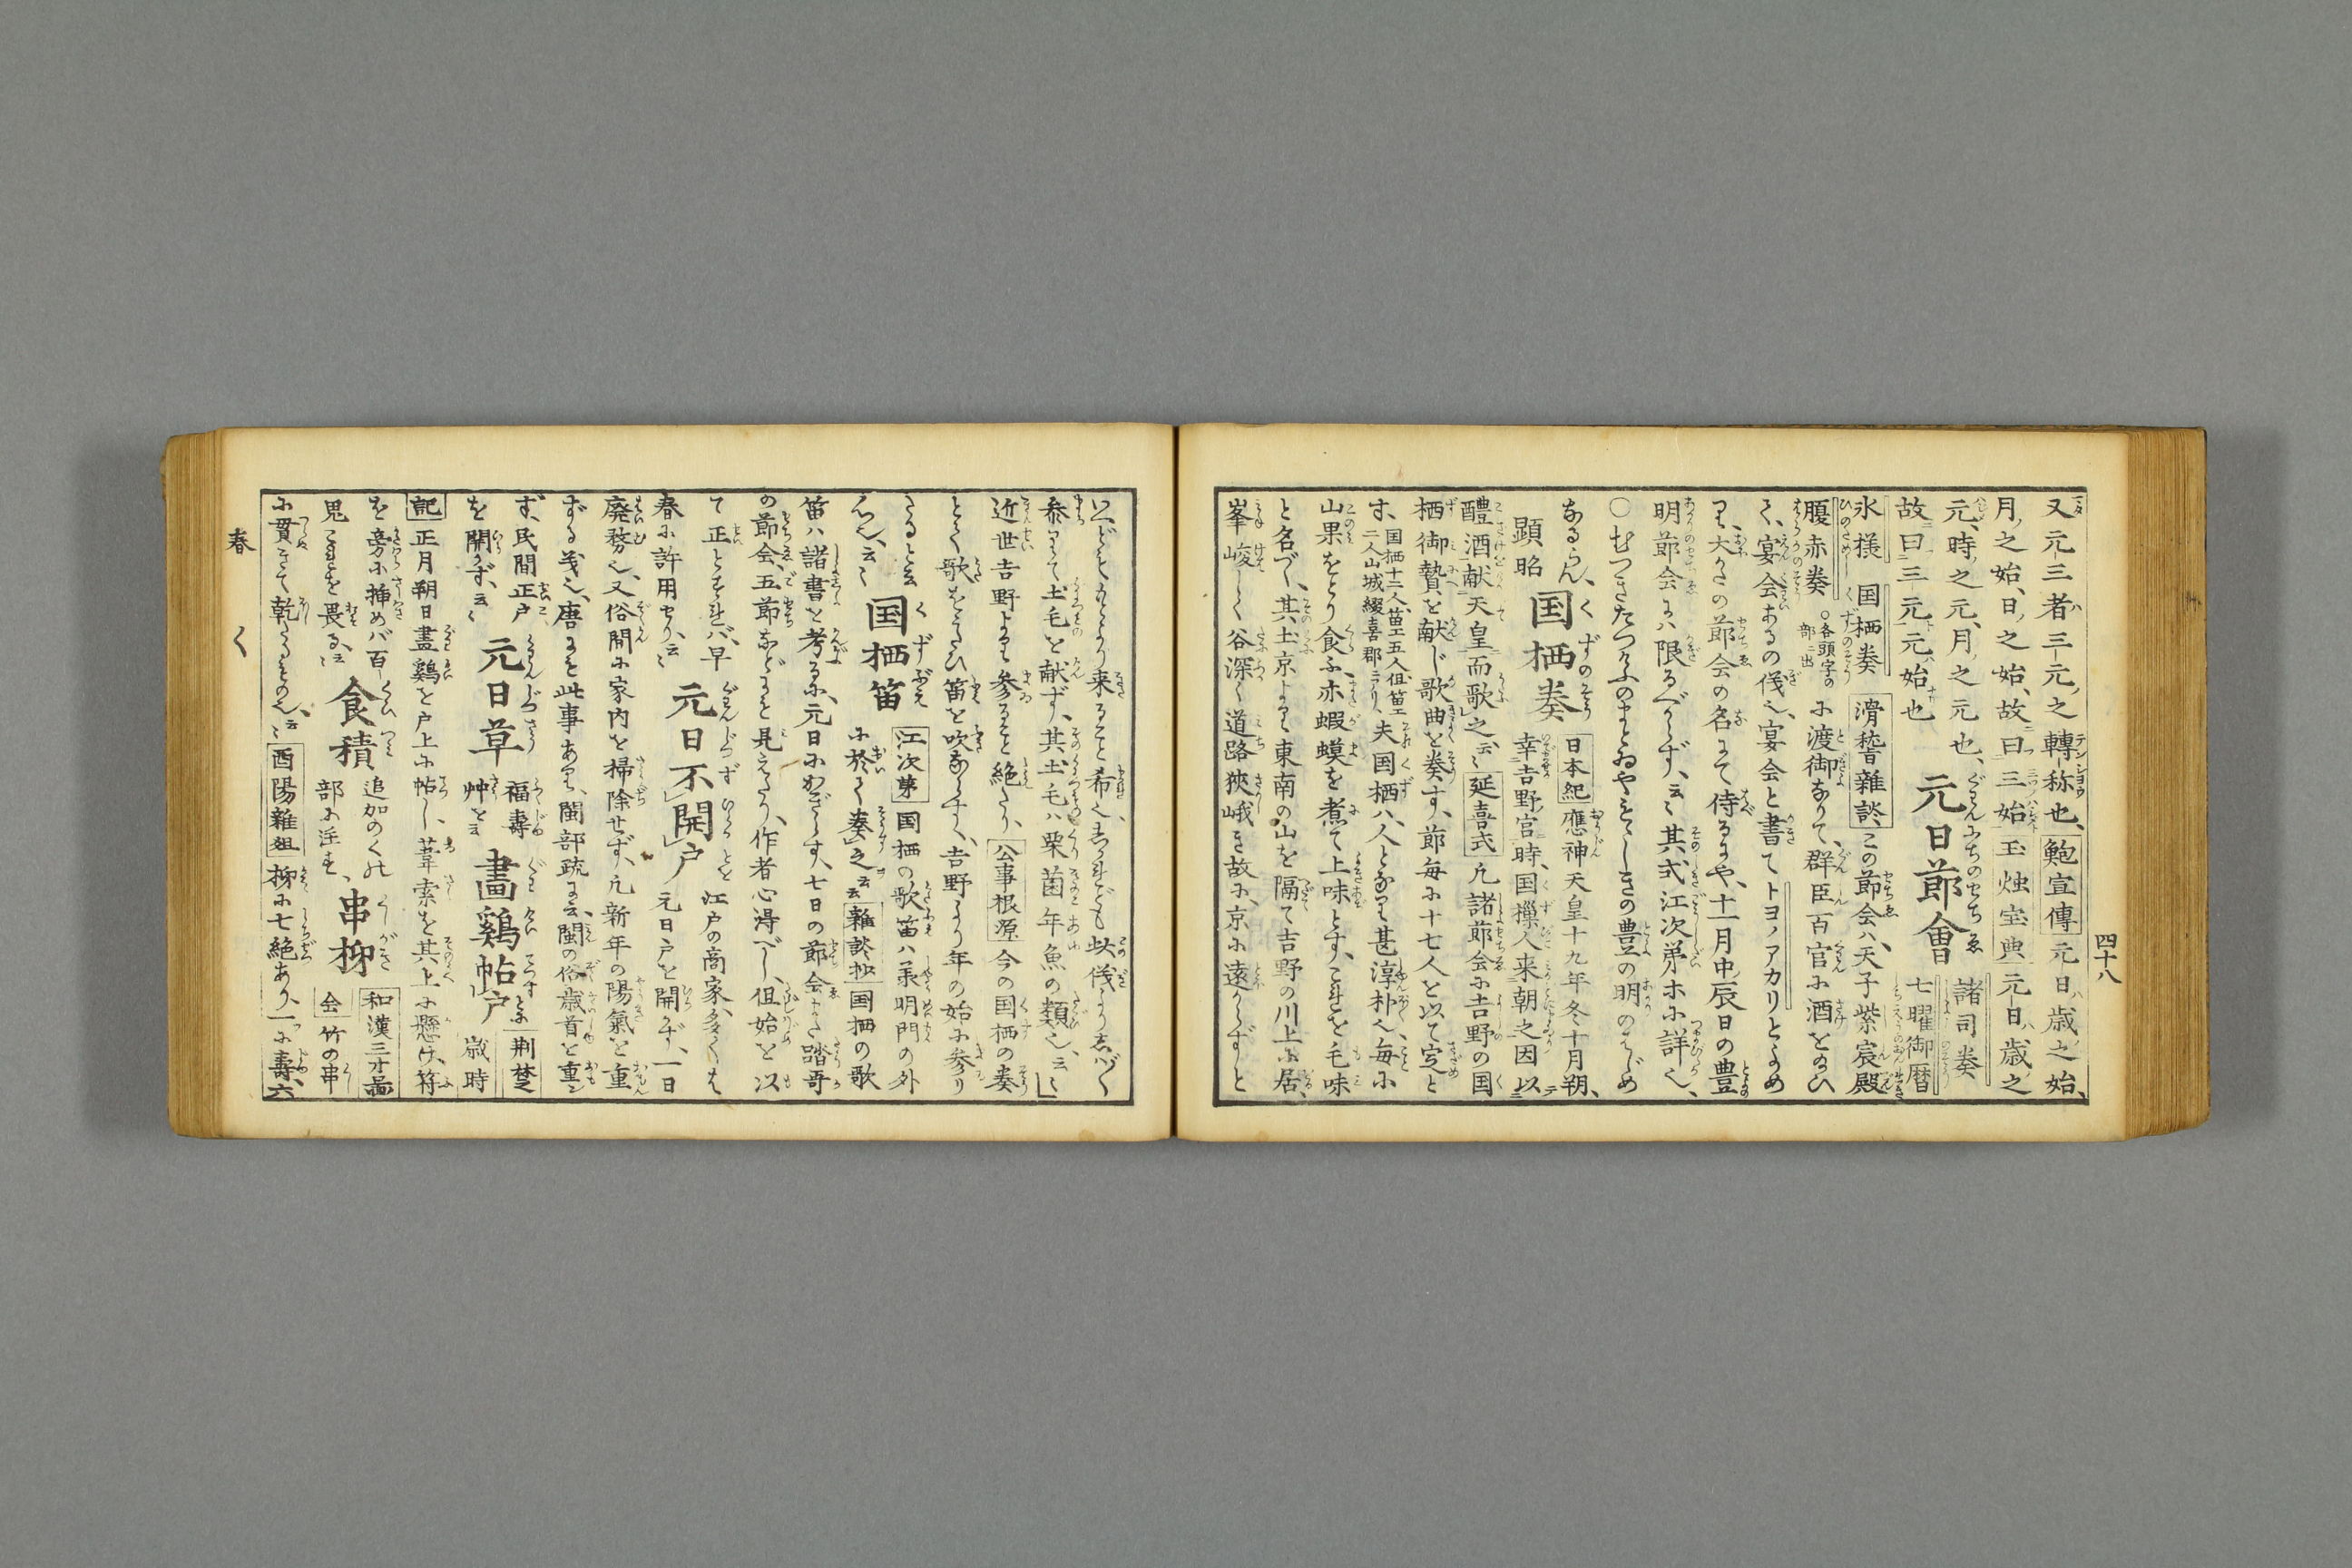 四十八
又元三者三元之轉称也、鮑宣傳元日歳之始、
月之始、日之始、故曰三始玉烛宝典元日歳之
元、時之元、月之元也、元日節會諸司奏七曜御暦
故曰三元元始也
氷様 国栖奏 滑稽雜談この節会ハ天子紫宸殿
腹赤奏 ○各頭字の部ニ出 に渡御なりて、群臣百官に酒を給ひ
て、宴会あるの儀也、宴会と書てトヨノアカリとよめ
り、大かたの節会の名にて侍るにや、十一月中辰日の豊
明節会には限るべからず、云々其式江次第ホに詳也、
○むつきたつけふのまとゐやもゝしきの豊の明のはじめ
なるらん、顕昭 国栖奏 日本紀應神天皇十九年冬十月朔、
幸吉野宮時、国樔人来朝之因以
醴酒献天皇而歌之云々延喜式凡諸節会に吉野の国
栖御贄を献じ歌曲を奏す、節毎に十七人を以て定と
す、国栖十二人、笛工五人、但笛工二人山城綴喜郡ニアリ、夫国栖ハ、人となり甚淳朴也、毎に
山果をとり食ふ、亦蝦蟆を煮て上味とす、これを毛味
と名づく、其土京より東南の山を隔て吉野の川上に居、
峯峻しく谷深く道路狹峨き故に、京に遠からずと
いへどももとより来ること希也、しかれども此儀よりしバ〱
参りて土毛を献ず、其土毛ハ栗菌年魚の類也、云々
近世吉野より参ること絶たり、公事根源今の国栖の奏
とて歌をうたひ笛を吹ならす、吉野より年の始に参り
たると云々 国栖笛 江次第国栖の歌笛ハ承明門の外
に於て奏之云云雜談抄国栖の歌
笛ハ諸書を考るに、元日にかぎらす、七日の節会また踏哥
の節会、五節などにも見えたり、作者心得べし、但始を以
て正とすれバ、早春に許用せり、云々 元日不開戸 江戸の商家、多くは
元日戸を開かず、一日
廃務也、又俗間に家内を掃除せず、凡新年の陽氣を重
ずる義也、唐にも此事あり、閩部疏に云、閩の俗歳首を重ン
ず、民間正戸を開かず、云々 元日草 福寿艸を云 畫鷄帖戸 荆楚歳時
記正月朔日畫鷄を戸上に帖し、葦索を其上に懸け、符
を旁に挿めバ百鬼これを畏る、云々 食積 追加のくの部に注す、 串柹 和漢三才圖会竹の串
に貫きて乾たるもの也、云々酉陽雜俎柹に七絶あり、一に壽、六
春 く